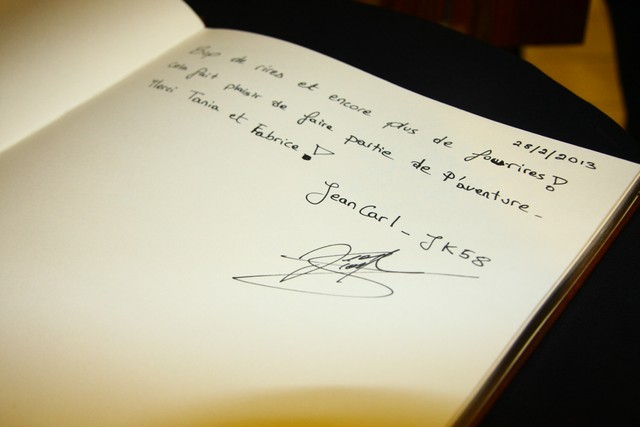 28/2/2013
Bcp de rires et encore plus de fourires!
cela fait plaisir de faire partie de l'aventure-
Merci Tania et Fabrice!
JeanCarl - JK58